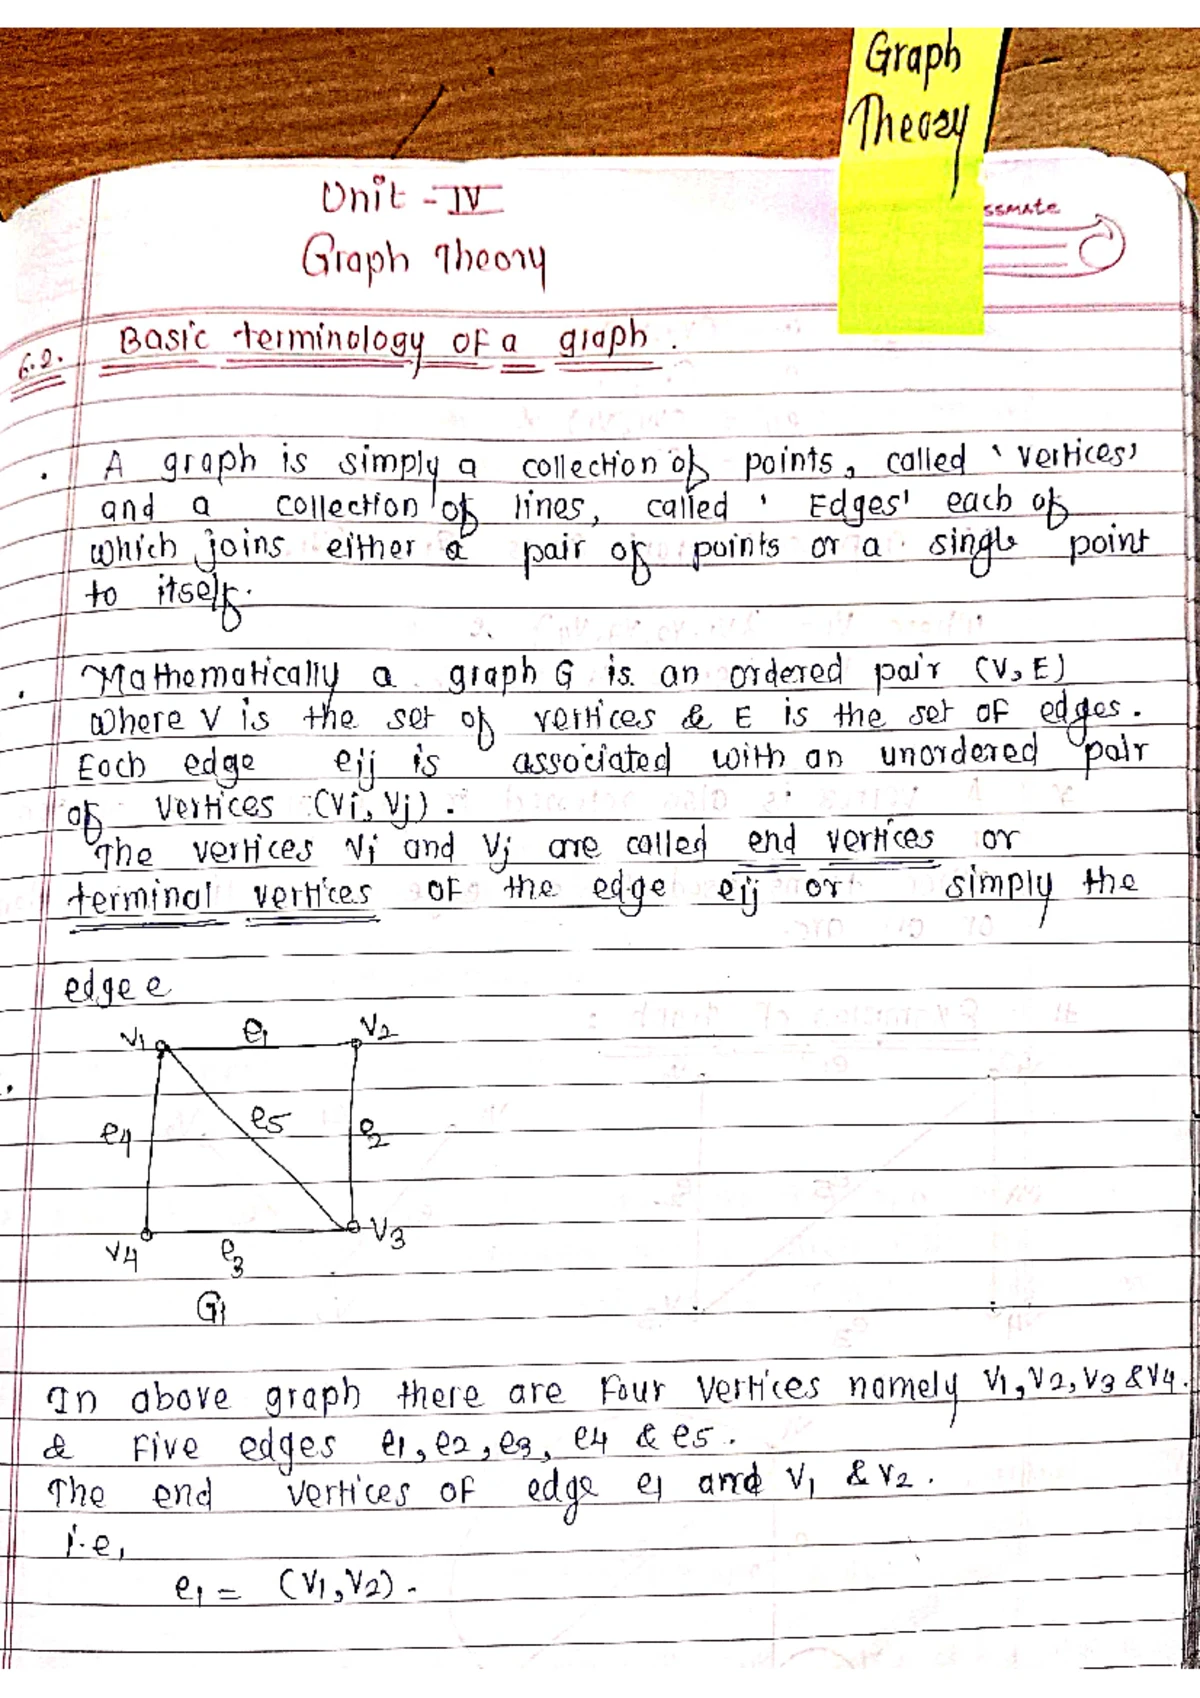 Graph
Theory
ssmate
Unit - IV
Graph Theory
6.2. Basic terminology of a graph.
. A graph is simply a collection of points, called 'vertices'
and a collection of lines, called 'Edges' each of
which joins either a pair of points or a single point
to itself.
. Mathematically a graph G is an ordered pair (V, E)
where V is the set of vertices & E is the set of edges.
Each edge eij is associated with an unordered pair
of vertices (Vi, Vj).
The vertices Vi and Vj are called end vertices or
terminal vertices of the edge eij or simply the
edge e
V1 e1 V2
e4 e5 e2
V4 e3 V3
G1
In above graph there are Four vertices namely V1, V2, V3 & V4.
& Five edges e1, e2, e3, e4 & e5.
The end vertices of edge e1 and V1 & V2.
i.e,
e1 = (V1, V2).